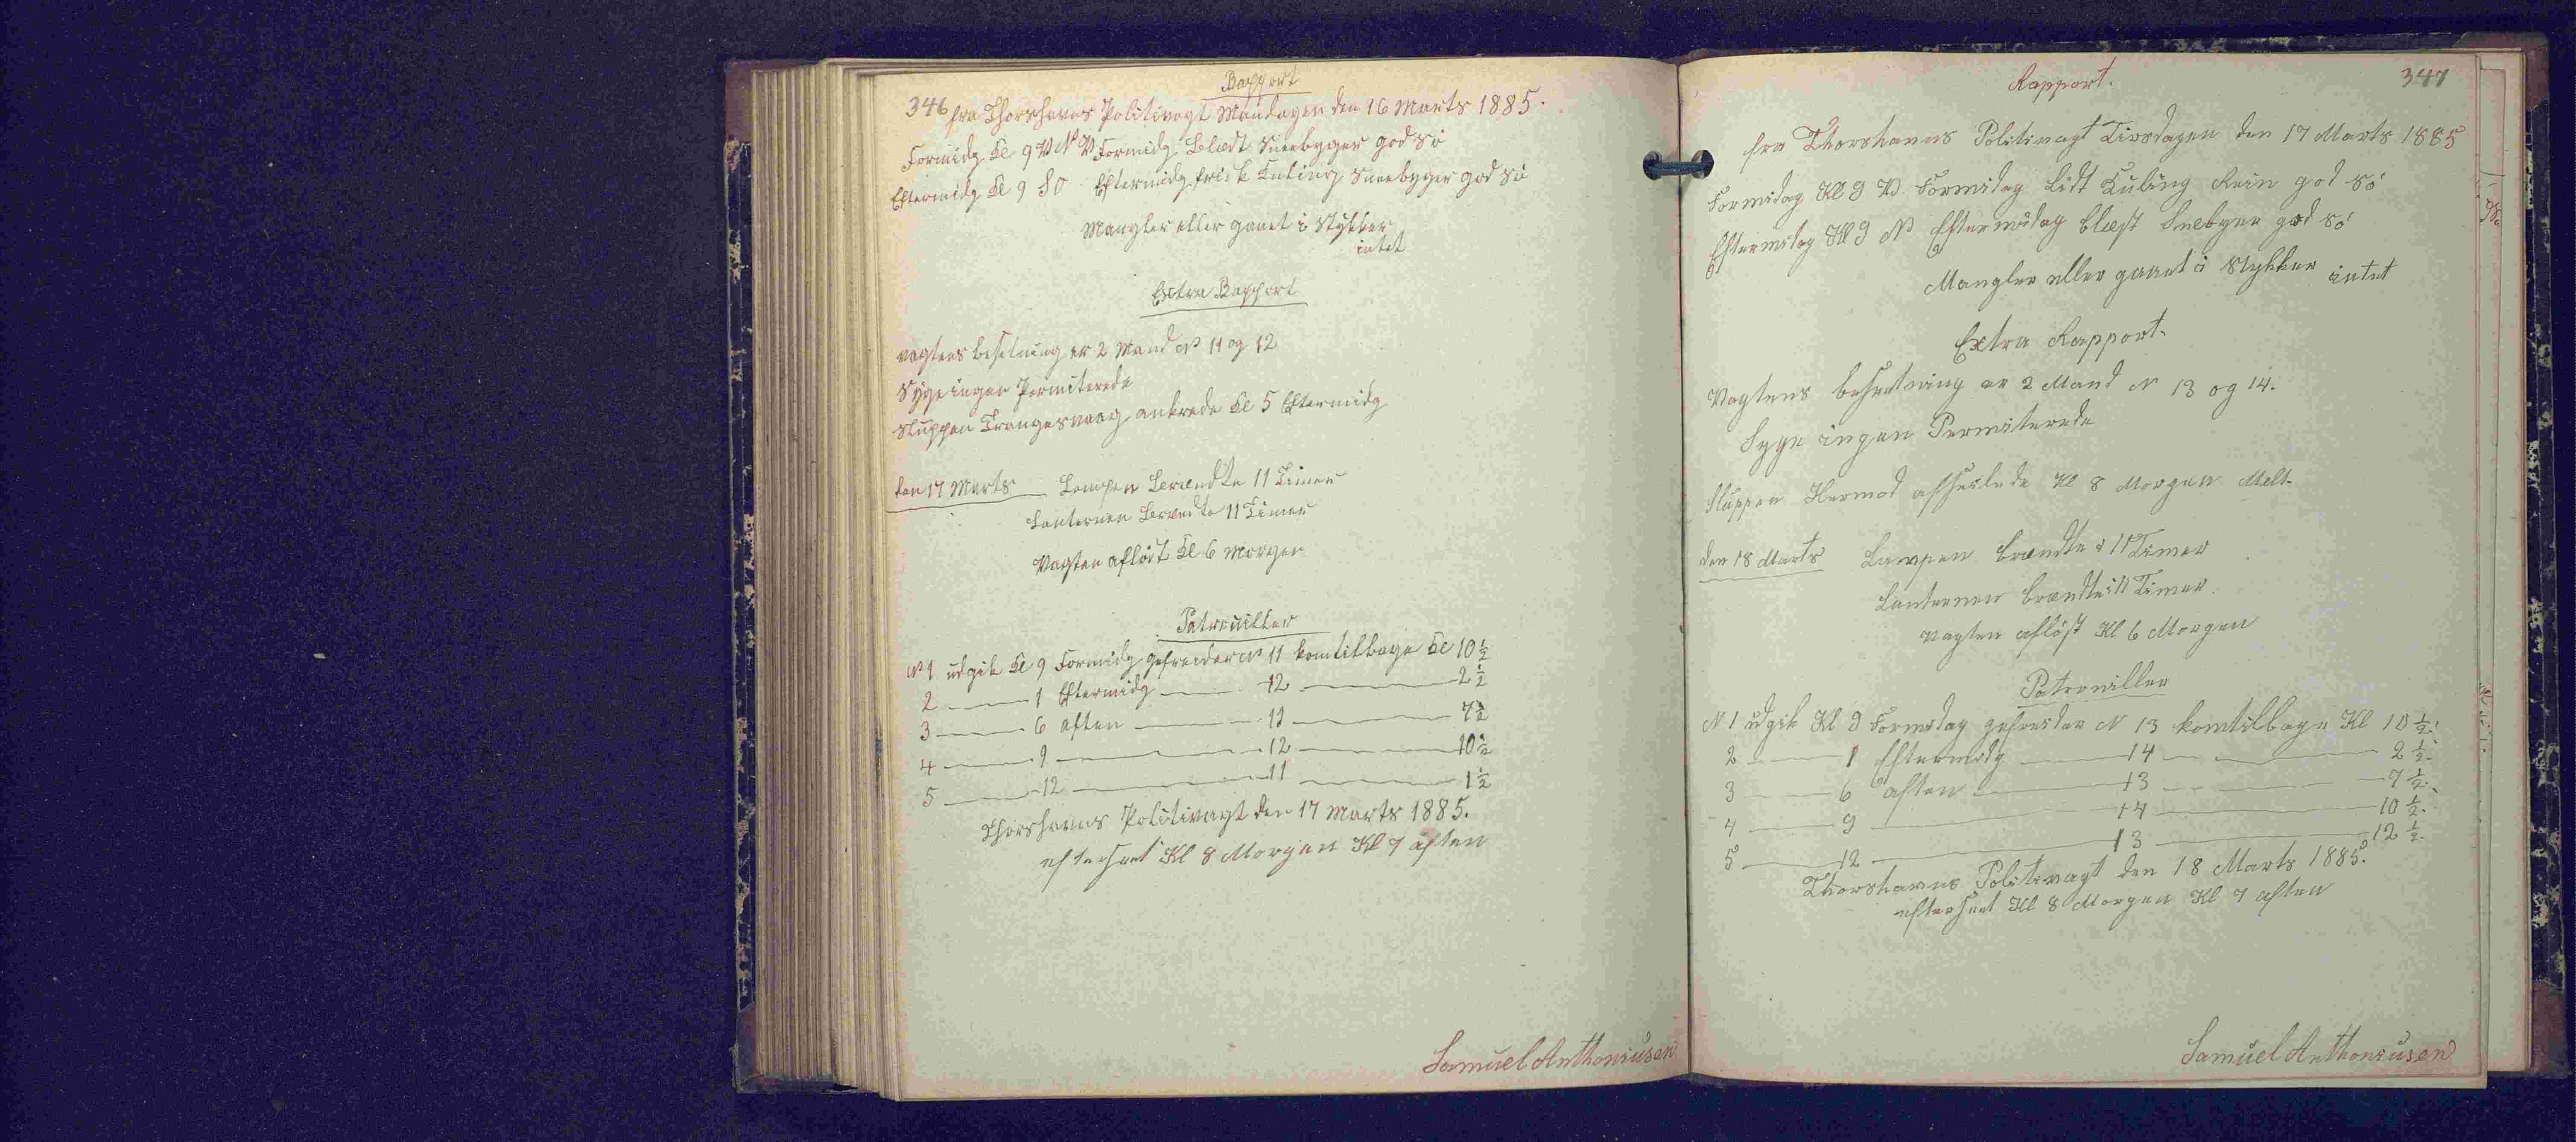 Rapport
346 fra Thorshavns Politivagt Mandagen den 16 Marts 1885.
Formidg Kl 9 V N V Formidg Blæst Sneebyger god Sö
Eftermidg Kl 9 S O Eftermidg frisk Kuling Sneebyger god Sö
Mangler eller gaaet i Stykker
intet
Extra Rapport
vagtens besetning er 2 Mand No 11 og 12
Syge ingen Permiterede
Sluppen Trangesvaag ankrede Kl 5 Eftermidg
den 17 Marts Lampen Brændte 11 Timer
Lanternen Brændte 11 Timer
Vagten aflöst Kl 6 Morgen
Patrouiller
No 1 udgik Kl 9 Formidg gefreider No 11 kom tilbage Kl 10 1/2
2 — 1 Eftermidg — 12 — 2 1/2
3 — 6 aften — 11 — 7 1/2
4 — 9 — 12 — 10 1/2
5 — 12 — 11 — 1 1/2
Thorshavns Politivagt den 17 Marts 1885.
efterseet Kl 8 Morgen Kl 7 aften
Samuel Anthoniusen
Rapport. 347
fra Thorshavns Politivagt Tirsdagen den 17 Marts 1885
Formidag Kl 9 V Formidag Lidt Kuling Rein god Sö
Eftermidag Kl 9 N Eftermidag blæst Snebyer god Sö
Mangler eller gaaet i Stykker intet
Extra Rapport.
Vagtens besætning er 2 Mand N 13 og 14.
Syge ingen Permiterede
Sluppen Hermod afseilede Kl 8 Morgen
den 18 Marts Lampen brændte i 11 Timer
Lanternen brændte i 11 Timer.
Vagten aflöst Kl 6 Morgen
Patrouiller
N 1 udgik Kl 9 Formidag gefreider N 13 kom tilbage Kl 10 1/2.
2 — 1 Eftermidg — 14 — 2 1/2.
3 — 6 aften — 13 — 7 1/2.
4 — 9 — 14 — 10 1/2.
5 — 12 — 13 — 12 1/2.
Thorshavns Politivagt den 18 Marts 1885.
efterseet Kl 8 Morgen Kl 7 aften
Samuel Anthoniusen